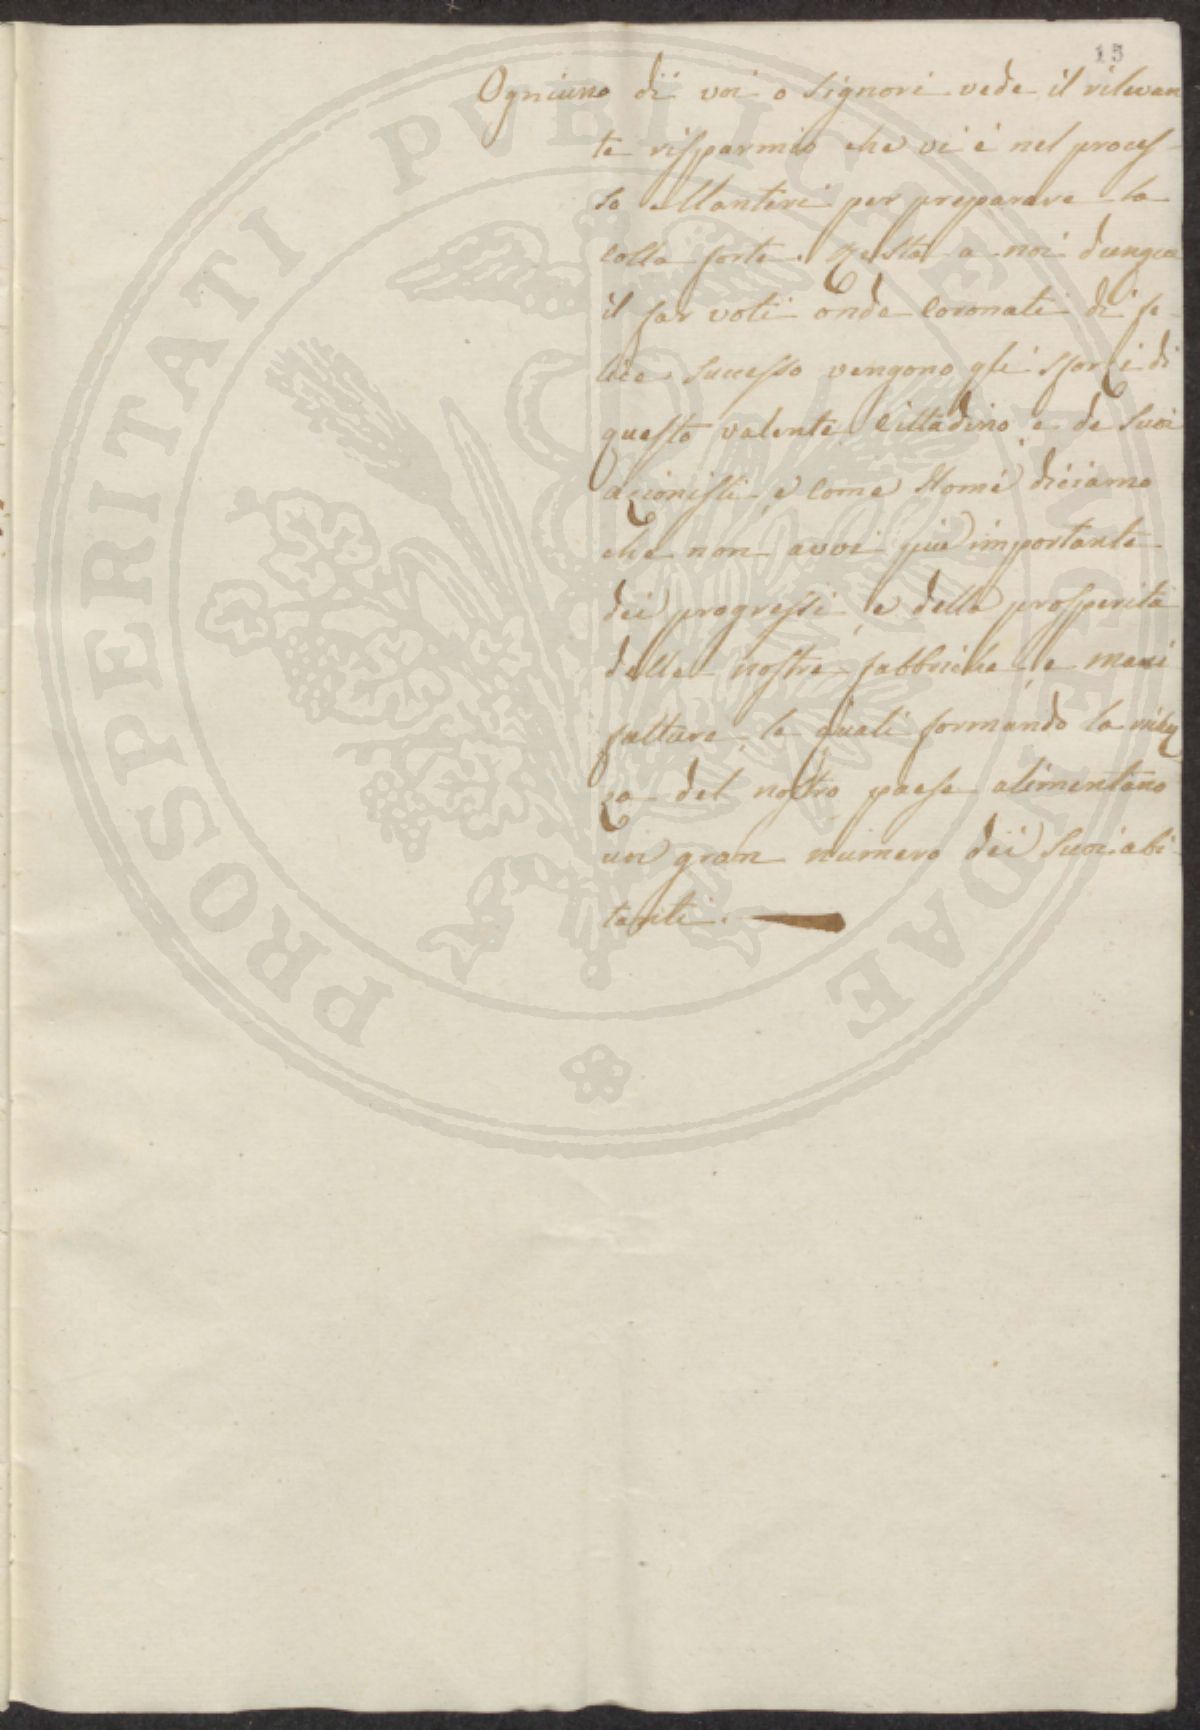 15
Ogniuno di voi o Signori vede il rilevan
te risparmio che vi è nel proces-
so Manteri per preparare la
colla forte. Resta a noi dunque
il far voti onde coronati di fe-
lice successo vengono gli sforzi di
questo valente Cittadino e de suoi
azionisti, e come Homé diciamo
che non avvi più importante
dei progressi, e della prosperità
delle nostre fabbriche, e mani
fatture, le quali formando la richez
za del nostro paese alimentano
un gran numero dei suoi abi
tanti.
PROSPERITATI PVBLICAE AVGENDAE